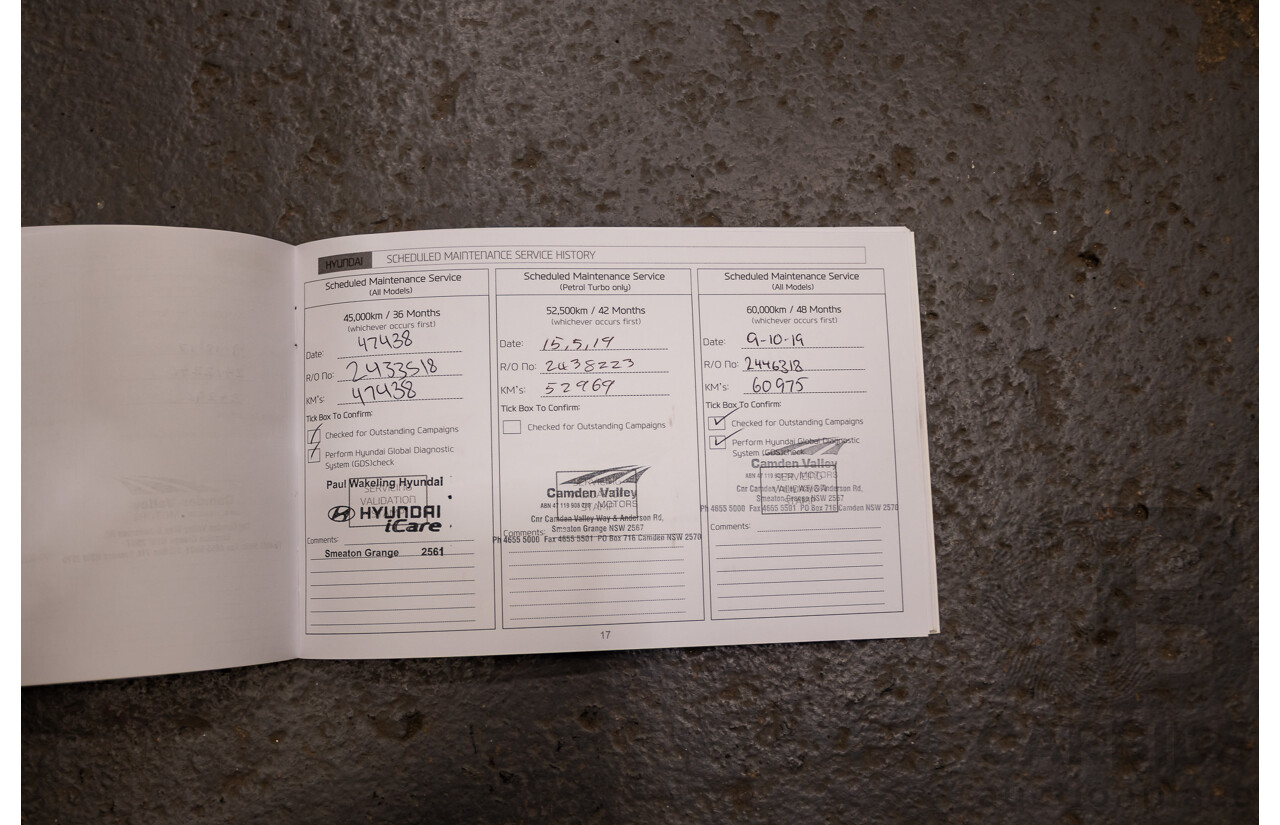 HYUNDAI SCHEDULED MAINTENANCE SERVICE HISTORY
Scheduled Maintenance Service
(All Models)
45,000km / 36 Months
(whichever occurs first)
Date: 47438
R/O No: 2433518
KM's: 47438
Tick Box To Confirm:
Checked for Outstanding Campaigns
Perform Hyundai Global Diagnostic
System (GDS)check
Paul Wakeling Hyundai
SERVICING
VALIDATION
HYUNDAI
iCare
Comments:
Smeaton Grange 2561
Scheduled Maintenance Service
(Petrol Turbo only)
52,500km / 42 Months
(whichever occurs first)
Date: 15,5,19
R/O No: 2438223
KM's: 52969
Tick Box To Confirm:
Checked for Outstanding Campaigns
Camden Valley
MOTORS
Cnr Camden Valley Way & Anderson Rd,
Smeaton Grange NSW 2567
Comments:
Ph 4655 5000 Fax 4655 5501 PO Box 716 Camden NSW 2570
Scheduled Maintenance Service
(All Models)
60,000km / 48 Months
(whichever occurs first)
Date: 9-10-19
R/O No: 2446318
KM's: 60975
Tick Box To Confirm:
Checked for Outstanding Campaigns
Perform Hyundai Global Diagnostic
System (GDS)check
Camden Valley
MOTORS
Cnr Camden Valley Way & Anderson Rd,
Smeaton Grange NSW 2567
Ph 4655 5000 Fax 4655 5501 PO Box 716 Camden NSW 2570
Comments:
17